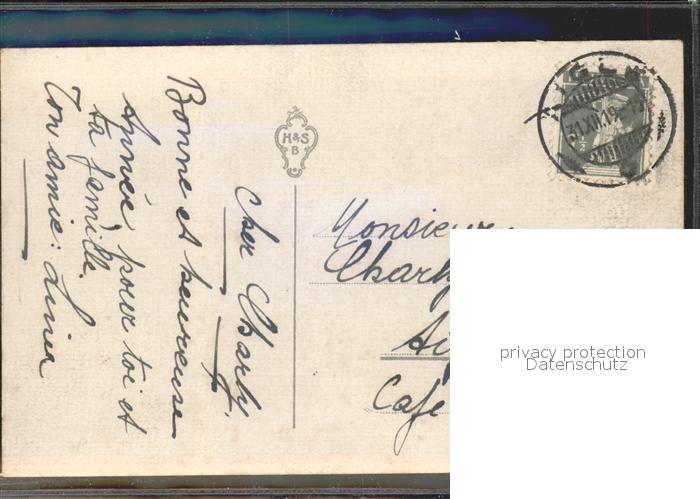 Cher Charly,
Bonne et heureuse
Année pour toi et
ta famille.
Ton amie: Lina
H&S
B
31.XII.19
Monsieur
Charly
Café
privacy protection
Datenschutz